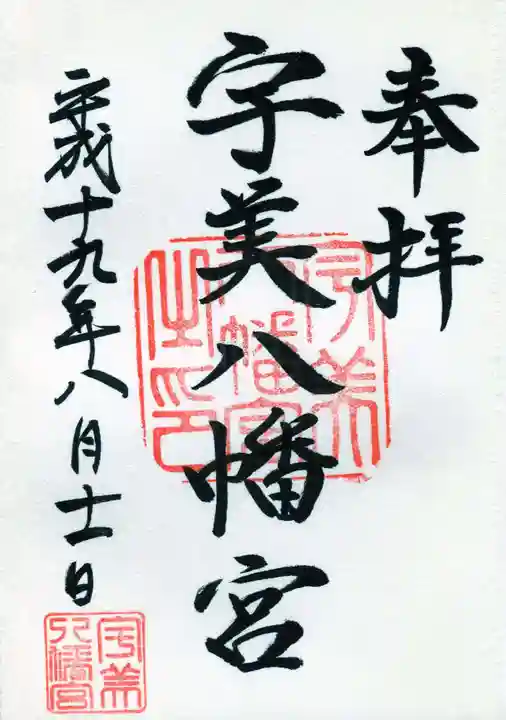 奉拝
宇美八幡宮
平成十九年八月十一日
宇美八幡宮之印
宇美八幡宮